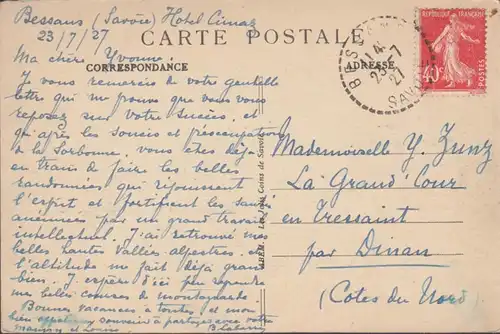 Bessans (Savoie) Hotel Cimaz
23/7/27
CARTE POSTALE
Ma chère Yvonne.
CORRESPONDANCE
ADRESSE
Je vous remercie de votre gentille
lettre qui me prouve que vous vous
reposez sur votre succès, et
qu'après les soucis et préoccupations
de la Sorbonne, vous êtes déjà
en train de faire les belles
randonnées qui réjouissent
l'esprit et fortifient les santés
anémiées par un grand travail
intellectuel. J'ai retrouvé mes
belles hautes Vallées alpestres et
l'altitude me fait déjà grand
bien. J'espère d'ici peu reprendre
mes belles courses de montagnarde.
Bonnes vacances à toutes et mon
bien affectueux souvenir à partager avec votre
maman et
B.
Les Jolis Coins de Savoie
REPUBLIQUE FRANÇAISE
40c
POSTES
BESSANS
14
23-7
27
SAVOIE
Mademoiselle Y. Zunz
La Grand' Cour
en Tressaint
par Dinan
(Côtes du Nord)